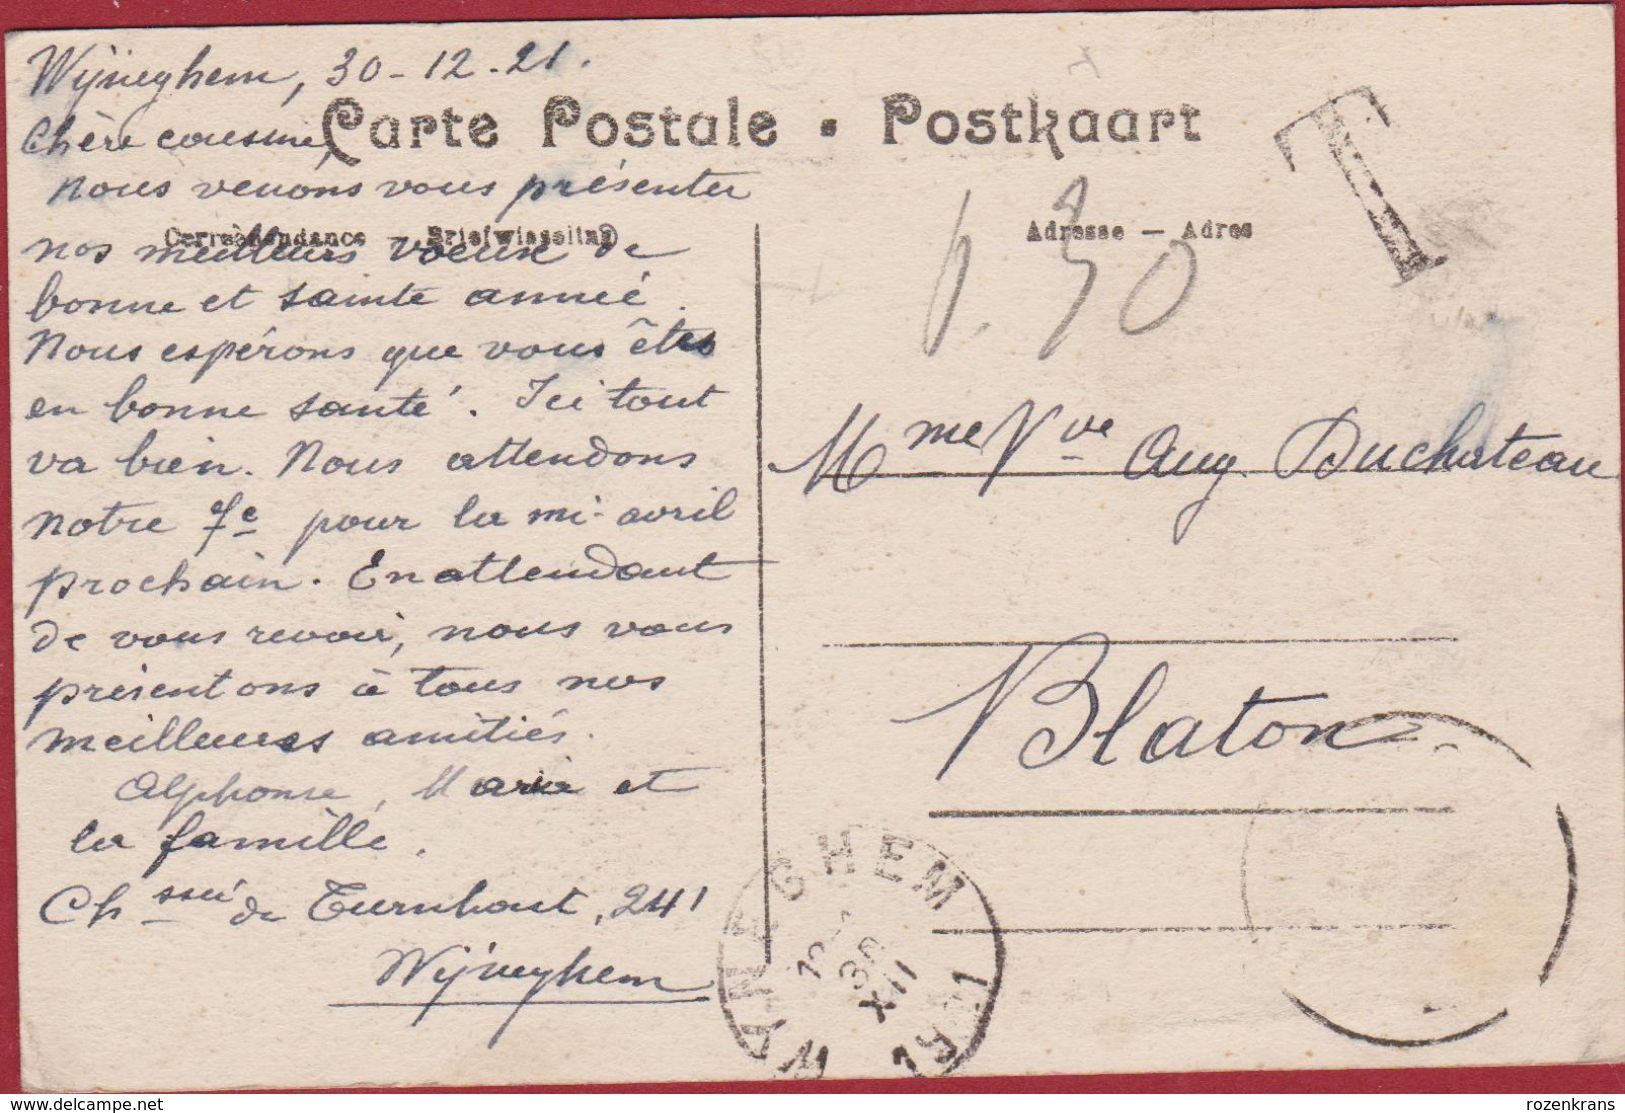 Wijneghem, 30-12-21.
Carte Postale • Postkaart
Chère cousine,
Nous venons vous présenter
Correspondance — Briefwisseling
nos meilleurs voeux de
bonne et sainte année.
Nous espérons que vous êtes
en bonne santé. Ici tout
va bien. Nous attendons
notre 7e pour la mi-avril
prochain. En attendant
de vous revoir, nous vous
présentons à tous nos
meilleures amitiés.
Alphonse, Marie et
la famille.
Chssée de Turnhout, 241
Wijneghem
T
Adresse — Adres
0.30
Mme Vve Aug Duchateau
Blaton
WYNEGHEM
rozenkrans